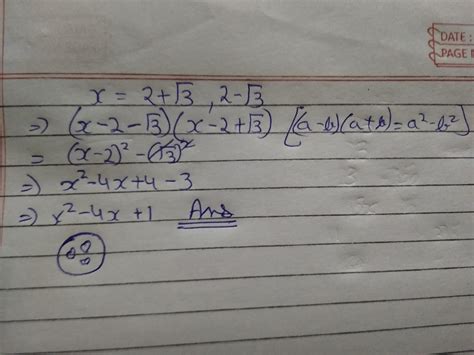 DATE :
PAGE
x = 2+√3 , 2-√3
⇒ (x-2-√3)(x-2+√3) [(a-b)(a+b)=a²-b²]
= (x-2)² - (√3)²
⇒ x²-4x+4-3
⇒ x²-4x+1 Ans